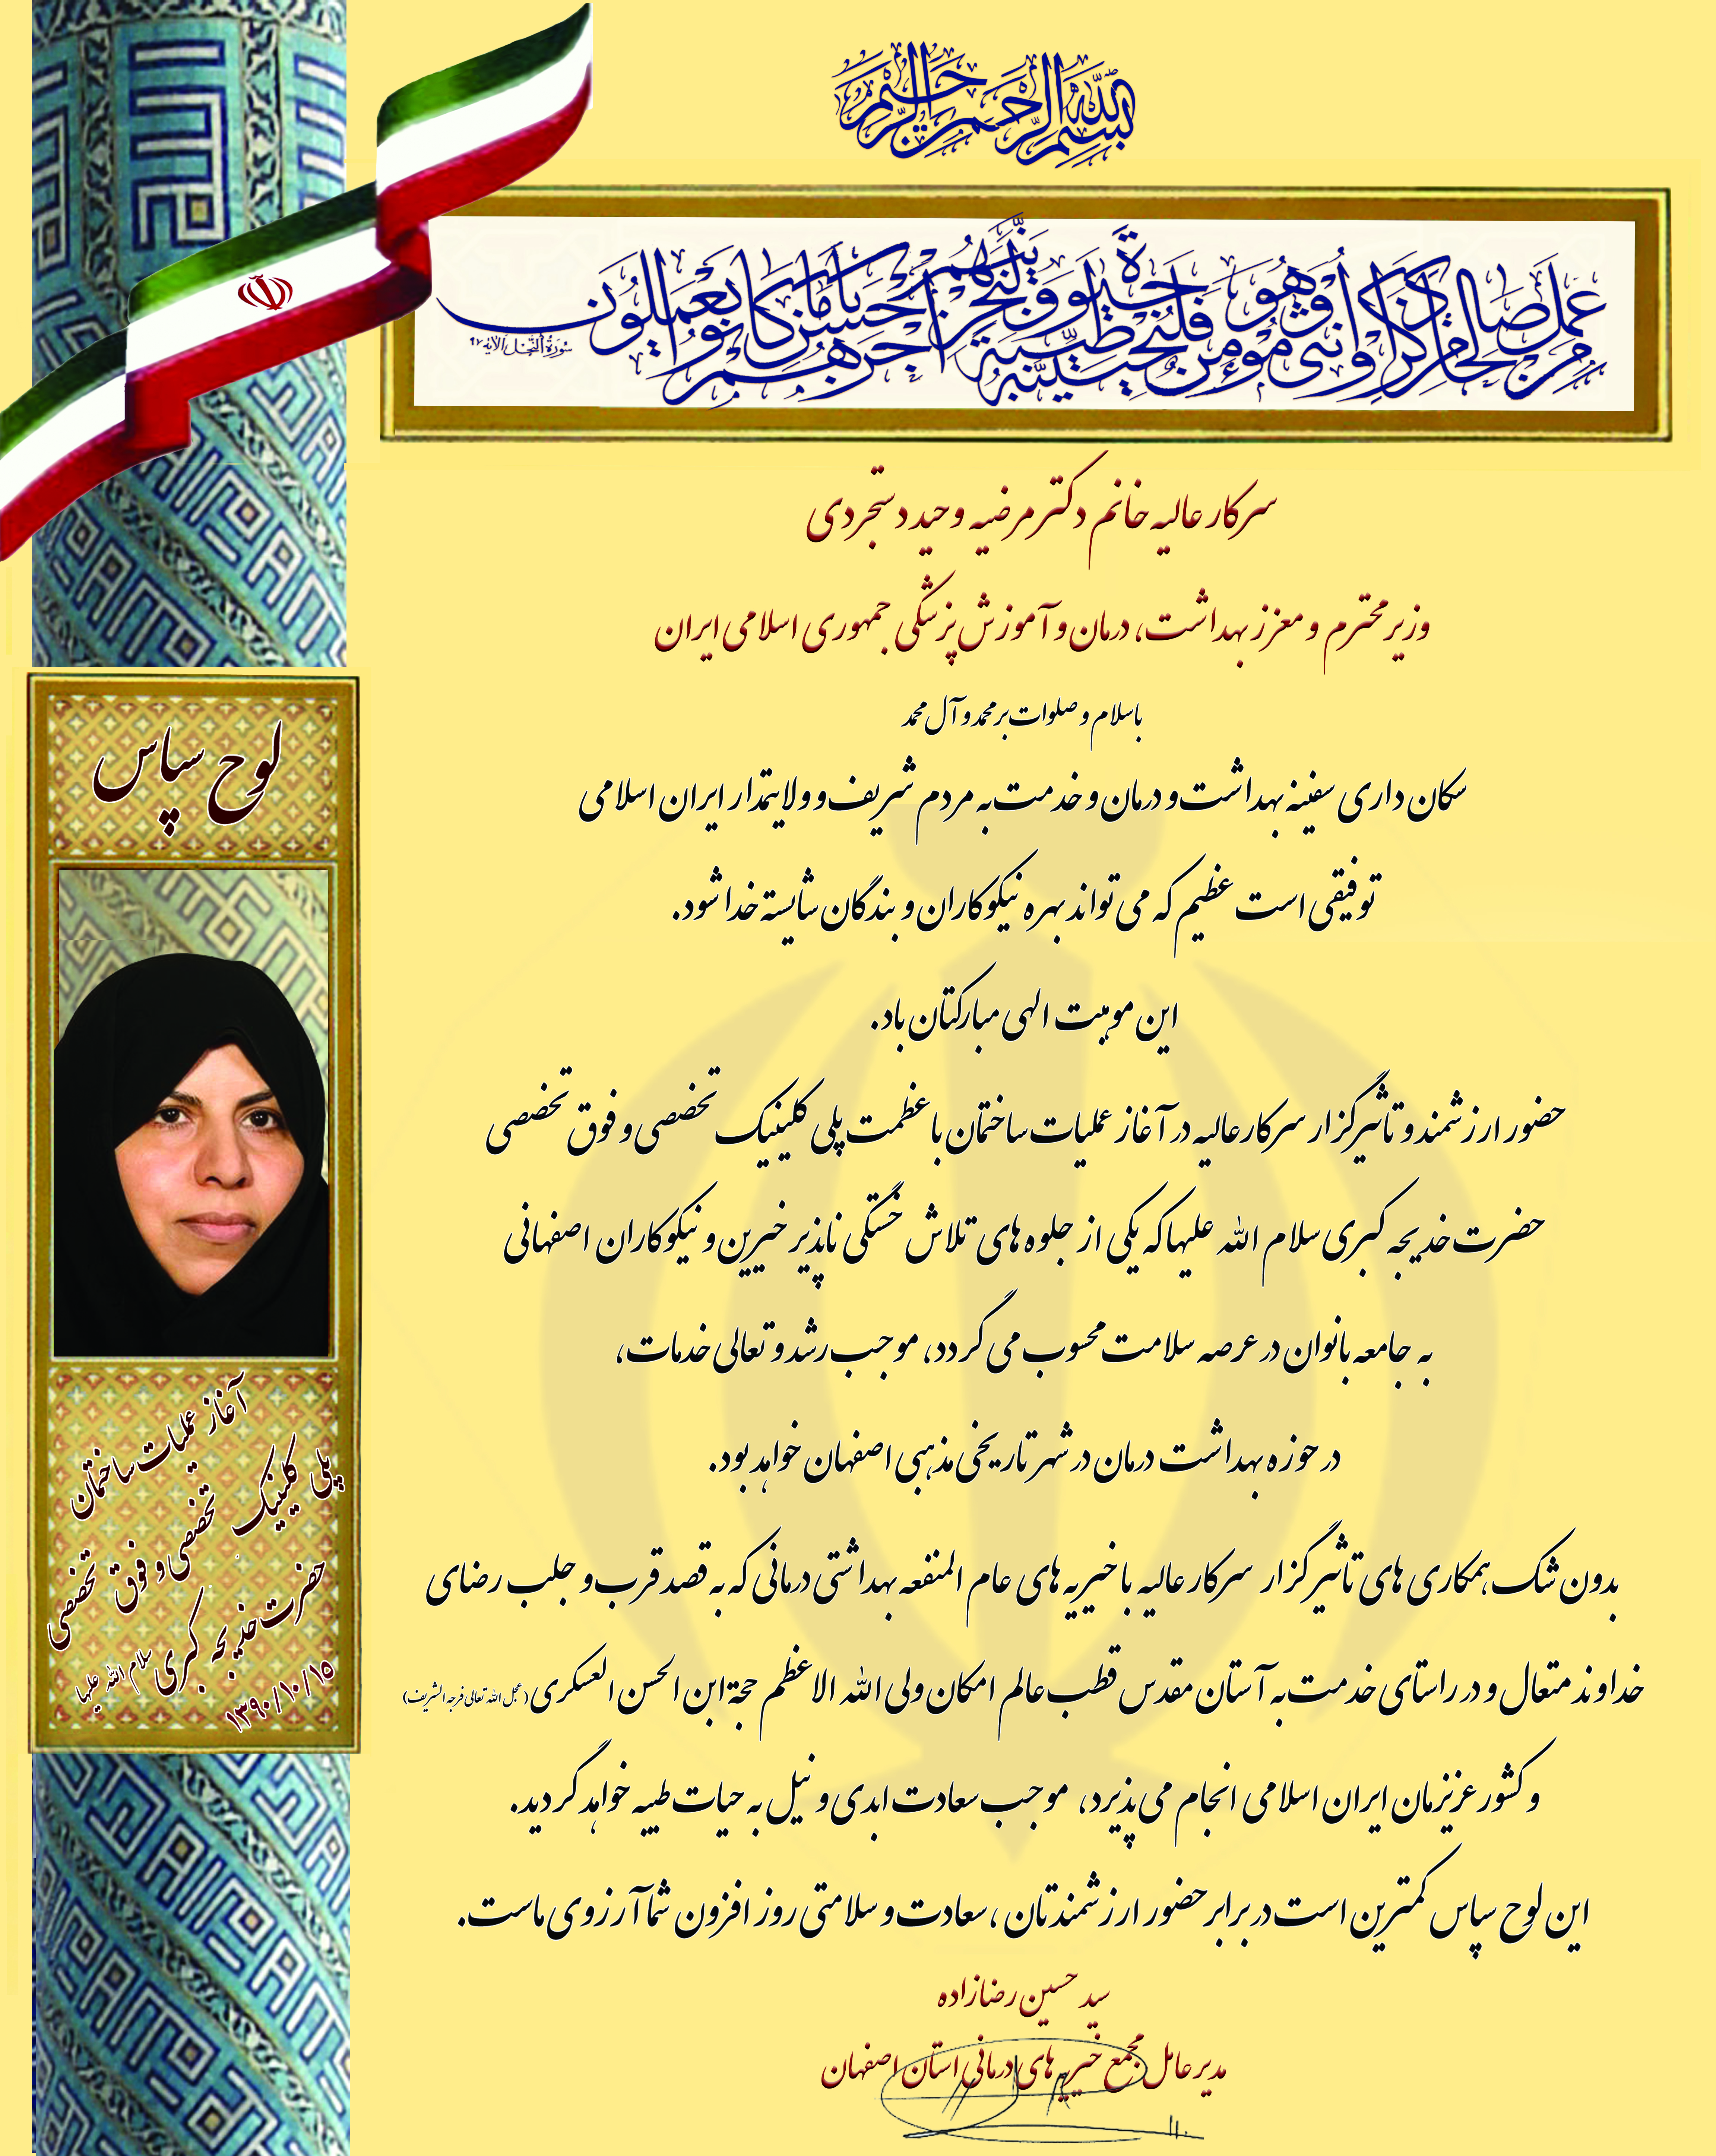 بسم الله الرحمن الرحیم
من عمل صالحا من ذکر او انثی و هو مؤمن فلنحیینه حیوة طیبة و لنجزینهم اجرهم باحسن ما کانوا یعملون
سورة النحل الآیة ۹۷
سرکار عالیه خانم دکتر مرضیه وحید دستجردی
وزیر محترم و معزز بهداشت، درمان و آموزش پزشکی جمهوری اسلامی ایران
باسلام و صلوات بر محمد و آل محمد
سکان داری سفینه بهداشت و درمان و خدمت به مردم شریف و ولایتمدار ایران اسلامی
توفیقی است عظیم که می تواند بهره نیکوکاران و بندگان شایسته خدا شود.
این موهبت الهی مبارکتان باد.
حضور ارزشمند و تاثیرگزار سرکار عالیه در آغاز عملیات ساختمان با عظمت پلی کلینیک تخصصی و فوق تخصصی
حضرت خدیجه کبری سلام الله علیها که یکی از جلوه های تلاش خستگی ناپذیر خیرین و نیکوکاران اصفهانی
به جامعه بانوان در عرصه سلامت محسوب می گردد، موجب رشد و تعالی خدمات،
در حوزه بهداشت درمان در شهر تاریخی مذهبی اصفهان خواهد بود.
بدون شک همکاری های تاثیرگزار سرکار عالیه با خیریه های عام المنفعه بهداشتی درمانی که به قصد قرب و جلب رضای
خداوند متعال و در راستای خدمت به آستان مقدس قطب عالم امکان ولی الله الاعظم حجة ابن الحسن العسکری (عجل الله تعالی فرجه الشریف)
و کشور عزیزمان ایران اسلامی انجام می پذیرد، موجب سعادت ابدی و نیل به حیات طیبه خواهد گردید.
این لوح سپاس کمترین است در برابر حضور ارزشمندتان، سعادت و سلامتی روز افزون شما آرزوی ماست.
سید حسین رضازاده
مدیر عامل مجمع خیریه های درمانی استان اصفهان
لوح سپاس
آغاز عملیات ساختمان
پلی کلینیک تخصصی و فوق تخصصی
حضرت خدیجه کبری سلام الله علیها
۱۳۹۰/۱۰/۱۵